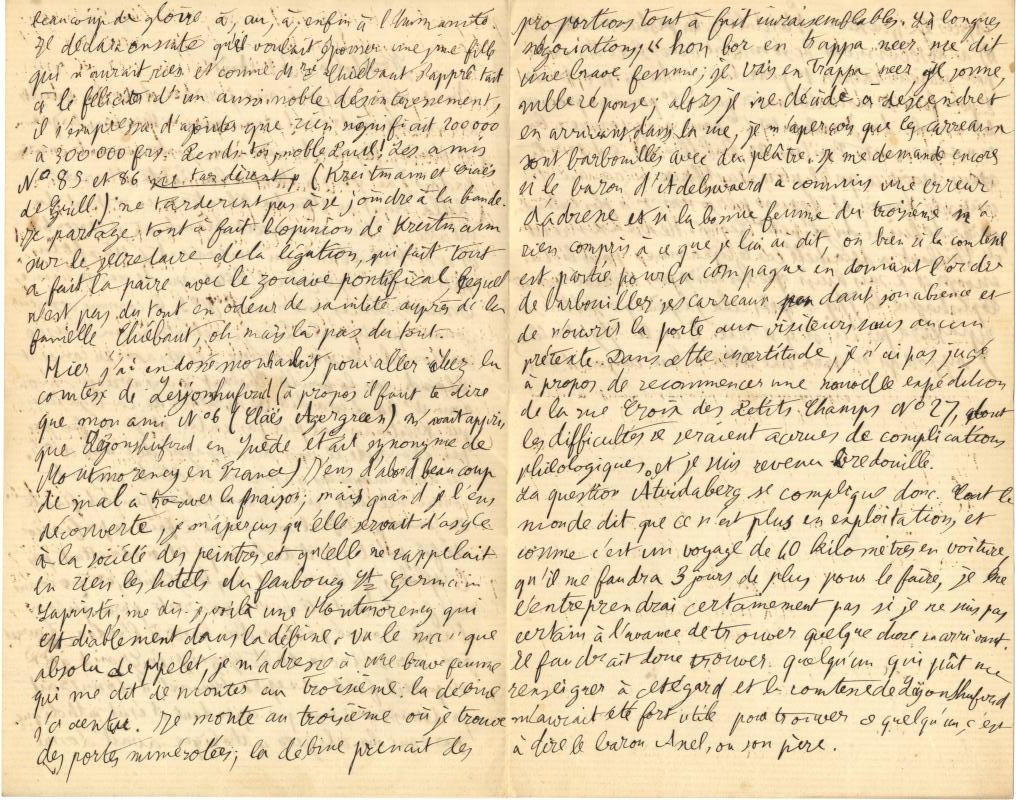 Beaucoup de gloire à, au, à enfin à l'Humanité.
Il déclara ensuite qu'il voulait épouser une jne fille
qui n'aurait rien et comme Mme Thiébaut s'apprêtait
à le féliciter d'un aussi noble désintéressement,
il s'empressa d'ajouter que rien signifiait 200 000
à 300 000 frs. Pends-toi, noble Paul! Les amis
No 85 et 86 (Kreitmann et
de Grill.) ne tarderent pas à se joindre à la bande.
Je partage tout à fait l'opinion de Kreitmann
sur le secretaire de la légation, qui fait tout
à fait la paire avec le zouave pontifical lequel
n'est pas du tout en odeur de sainteté auprès de la
famille Thiébaut, oh mais là pas du tout.
Hier j'ai endossé mon habit pour aller chez la
comtesse de Leijonhufvud (à propos il faut te dire
que mon ami No 6 (Claës) m'avait appris
que Leijonhufvud en Suède était synonyme de
Montmorency en France) J'eus d'abord beaucoup
de mal à trouver la maison, mais quand je l'eus
découverte, je m'aperçus qu'elle servait d'asyle
à la société des peintres et qu'elle ne rappelait
en riens les hôtels du faubourg St Germain
Sapristi, me dis-je, voilà une Montmorency qui
est diablement dans la débine. Vu le manque
absolu de pipelet, je m'adresse à une brave femme
qui me dit de monter au troisième. la débine
s'accentue. Je monte au troisième où je trouve
des portes numérotées; la débine prenait des
proportions tout à fait invraisemblables. Là longues
négociations, « hon bor en trappa neer me dit
une brave femme; je vais en trappa neer je sonne,
nulle réponse; alors je me décide à descendre et
en arrivant dans la rue, je m'aperçois que les carreaux
sont barbouillés avec du plâtre. Je me demande encore
si le baron d'Adelswaerd a commis une erreur
d'adresse et si la bonne femme du troisième n'a
rien compris à ce que je lui ai dit, ou bien si la comtesse
est partie pour la campagne en donnant l'ordre
de barbouiller ses carreaux pendant son absence et
de n'ouvrir la porte aux visiteurs sous aucun
prétexte. Dans cette incertitude, je n'ai pas jugé
à propos de recommencer une nouvelle expédition
de la rue Croix des Petits Champs No 27, dont
les difficultés se seraient accrues de complications
philologiques, et je suis revenu bredouille.
La question Atvidaberg se complique donc. Tout le
monde dit que ce n'est plus en exploitation, et
comme c'est un voyage de 40 kilomètres en voiture,
qu'il me faudra 3 jours de plus pour le faire, je ne
l'entreprendrai certainement pas si je ne suis pas
certain à l'avance de trouver quelque chose en arrivant.
Il faudrait donc trouver quelqu'un qui pût me
renseigner à cet égard et la comtesse de Leijonhufvud
m'aurait été fort utile pour trouver ce quelqu'un, c'est
à dire le baron Axel, ou son père.